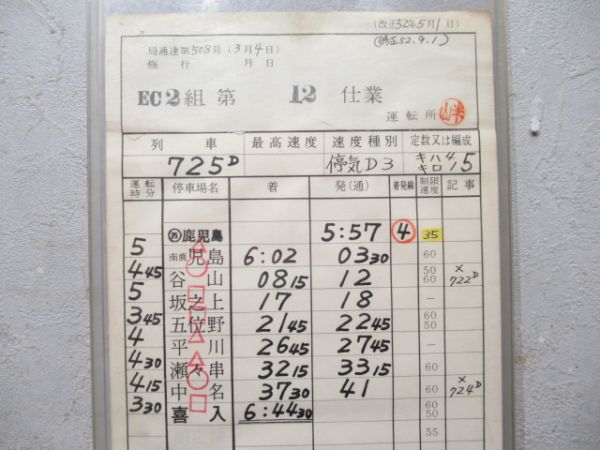 (改正52年5月1日)
(修正52.9.1)
局通達第508号(3月4日)
施行 月 日
EC2組 第 12 仕業
運転所
列車 最高速度 速度種別 定数又は編成
725D 停気D3 キハ4 キロ1 5
運転時分 停車場名 着 発(通) 着発線 制限速度 記事
㊄鹿児島 5:57 4 35
5
南鹿児島 6:02 03 30 60
4 45
谷山 08 15 12 50 60 × 722D
5
坂之上 17 18 －
3 45
五位野 21 45 22 45 60 50
4
平川 26 45 27 45 －
4 30
瀬々串 32 15 33 15 60
4 15
中名 37 30 41 60 × 724D
3 30
喜入 6:44 30 60 50
55